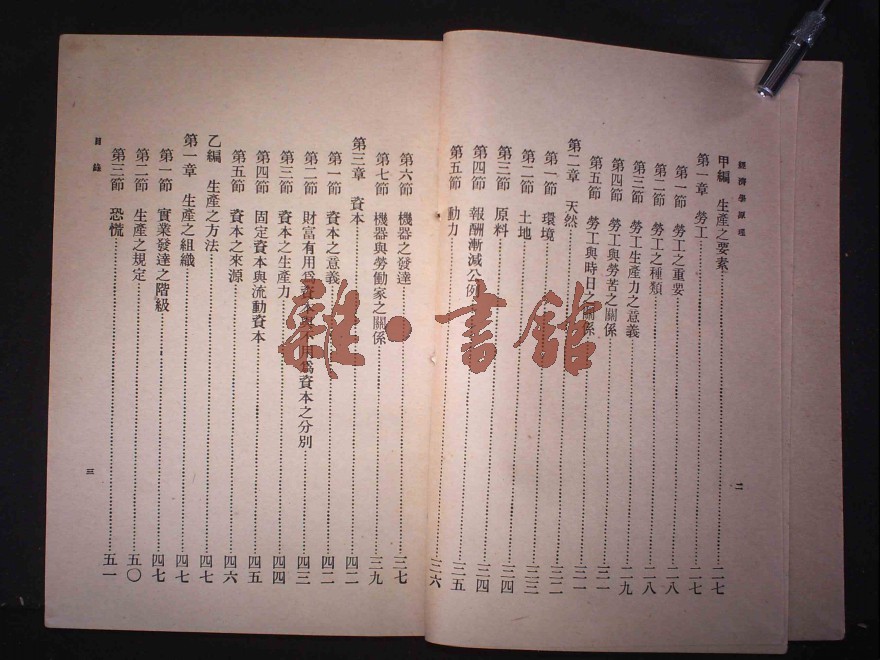 經濟學原理
甲編 生產之要素 二七
第一章 勞工 二七
第一節 勞工之重要 二八
第二節 勞工之種類 二八
第三節 勞工生產力之意義 二九
第四節 勞工與勞苦之關係 三一
第五節 勞工與時日之關係 三一
第二章 天然 三二
第一節 環境 三二
第二節 土地 三三
第三節 原料 三四
第四節 報酬漸減公例 三四
第五節 動力 三五
三六
二
第六節 機器之發達 三七
第七節 機器與勞働家之關係 三九
第三章 資本 四二
第一節 資本之意義 四二
第二節 財富有用爲資本與不用爲資本之分別 四三
第三節 資本之生產力 四四
第四節 固定資本與流動資本 四五
第五節 資本之來源 四六
乙編 生產之方法 四七
第一章 生產之組織 四七
第一節 實業發達之階級 四七
第二節 生產之規定 五〇
第三節 恐慌 五一
目錄
三
雜·書館